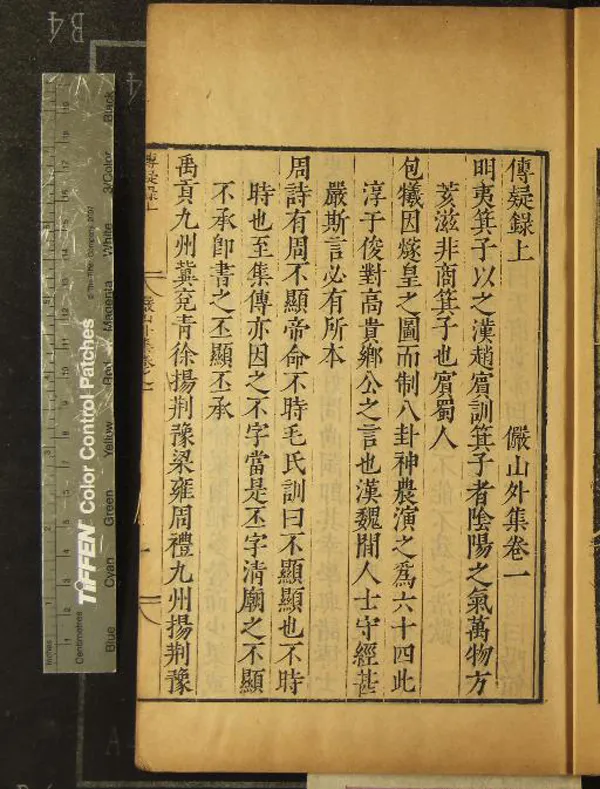 傳疑錄上　儼山外集卷一
明夷箕子以之漢趙賓訓箕子者陰陽之氣萬物方
荄滋非商箕子也賓蜀人
包犧因燧皇之圖而制八卦神農演之爲六十四此
淳于俊對高貴鄉公之言也漢魏間人士守經甚
嚴斯言必有所本
周詩有周不顯帝命不時毛氏訓曰不顯顯也不時
時也至集傳亦因之不字當是丕字清廟之不顯
不承卽書之丕顯丕承
禹貢九州冀兗青徐揚荆豫梁雍周禮九州揚荆豫
B4
4
TIFFEN Color Control Patches
© The Tiffen Company, 2007
Blue
Cyan
Green
Yellow
Red
Magenta
White
3/Color
Black
Inches
Centimetres